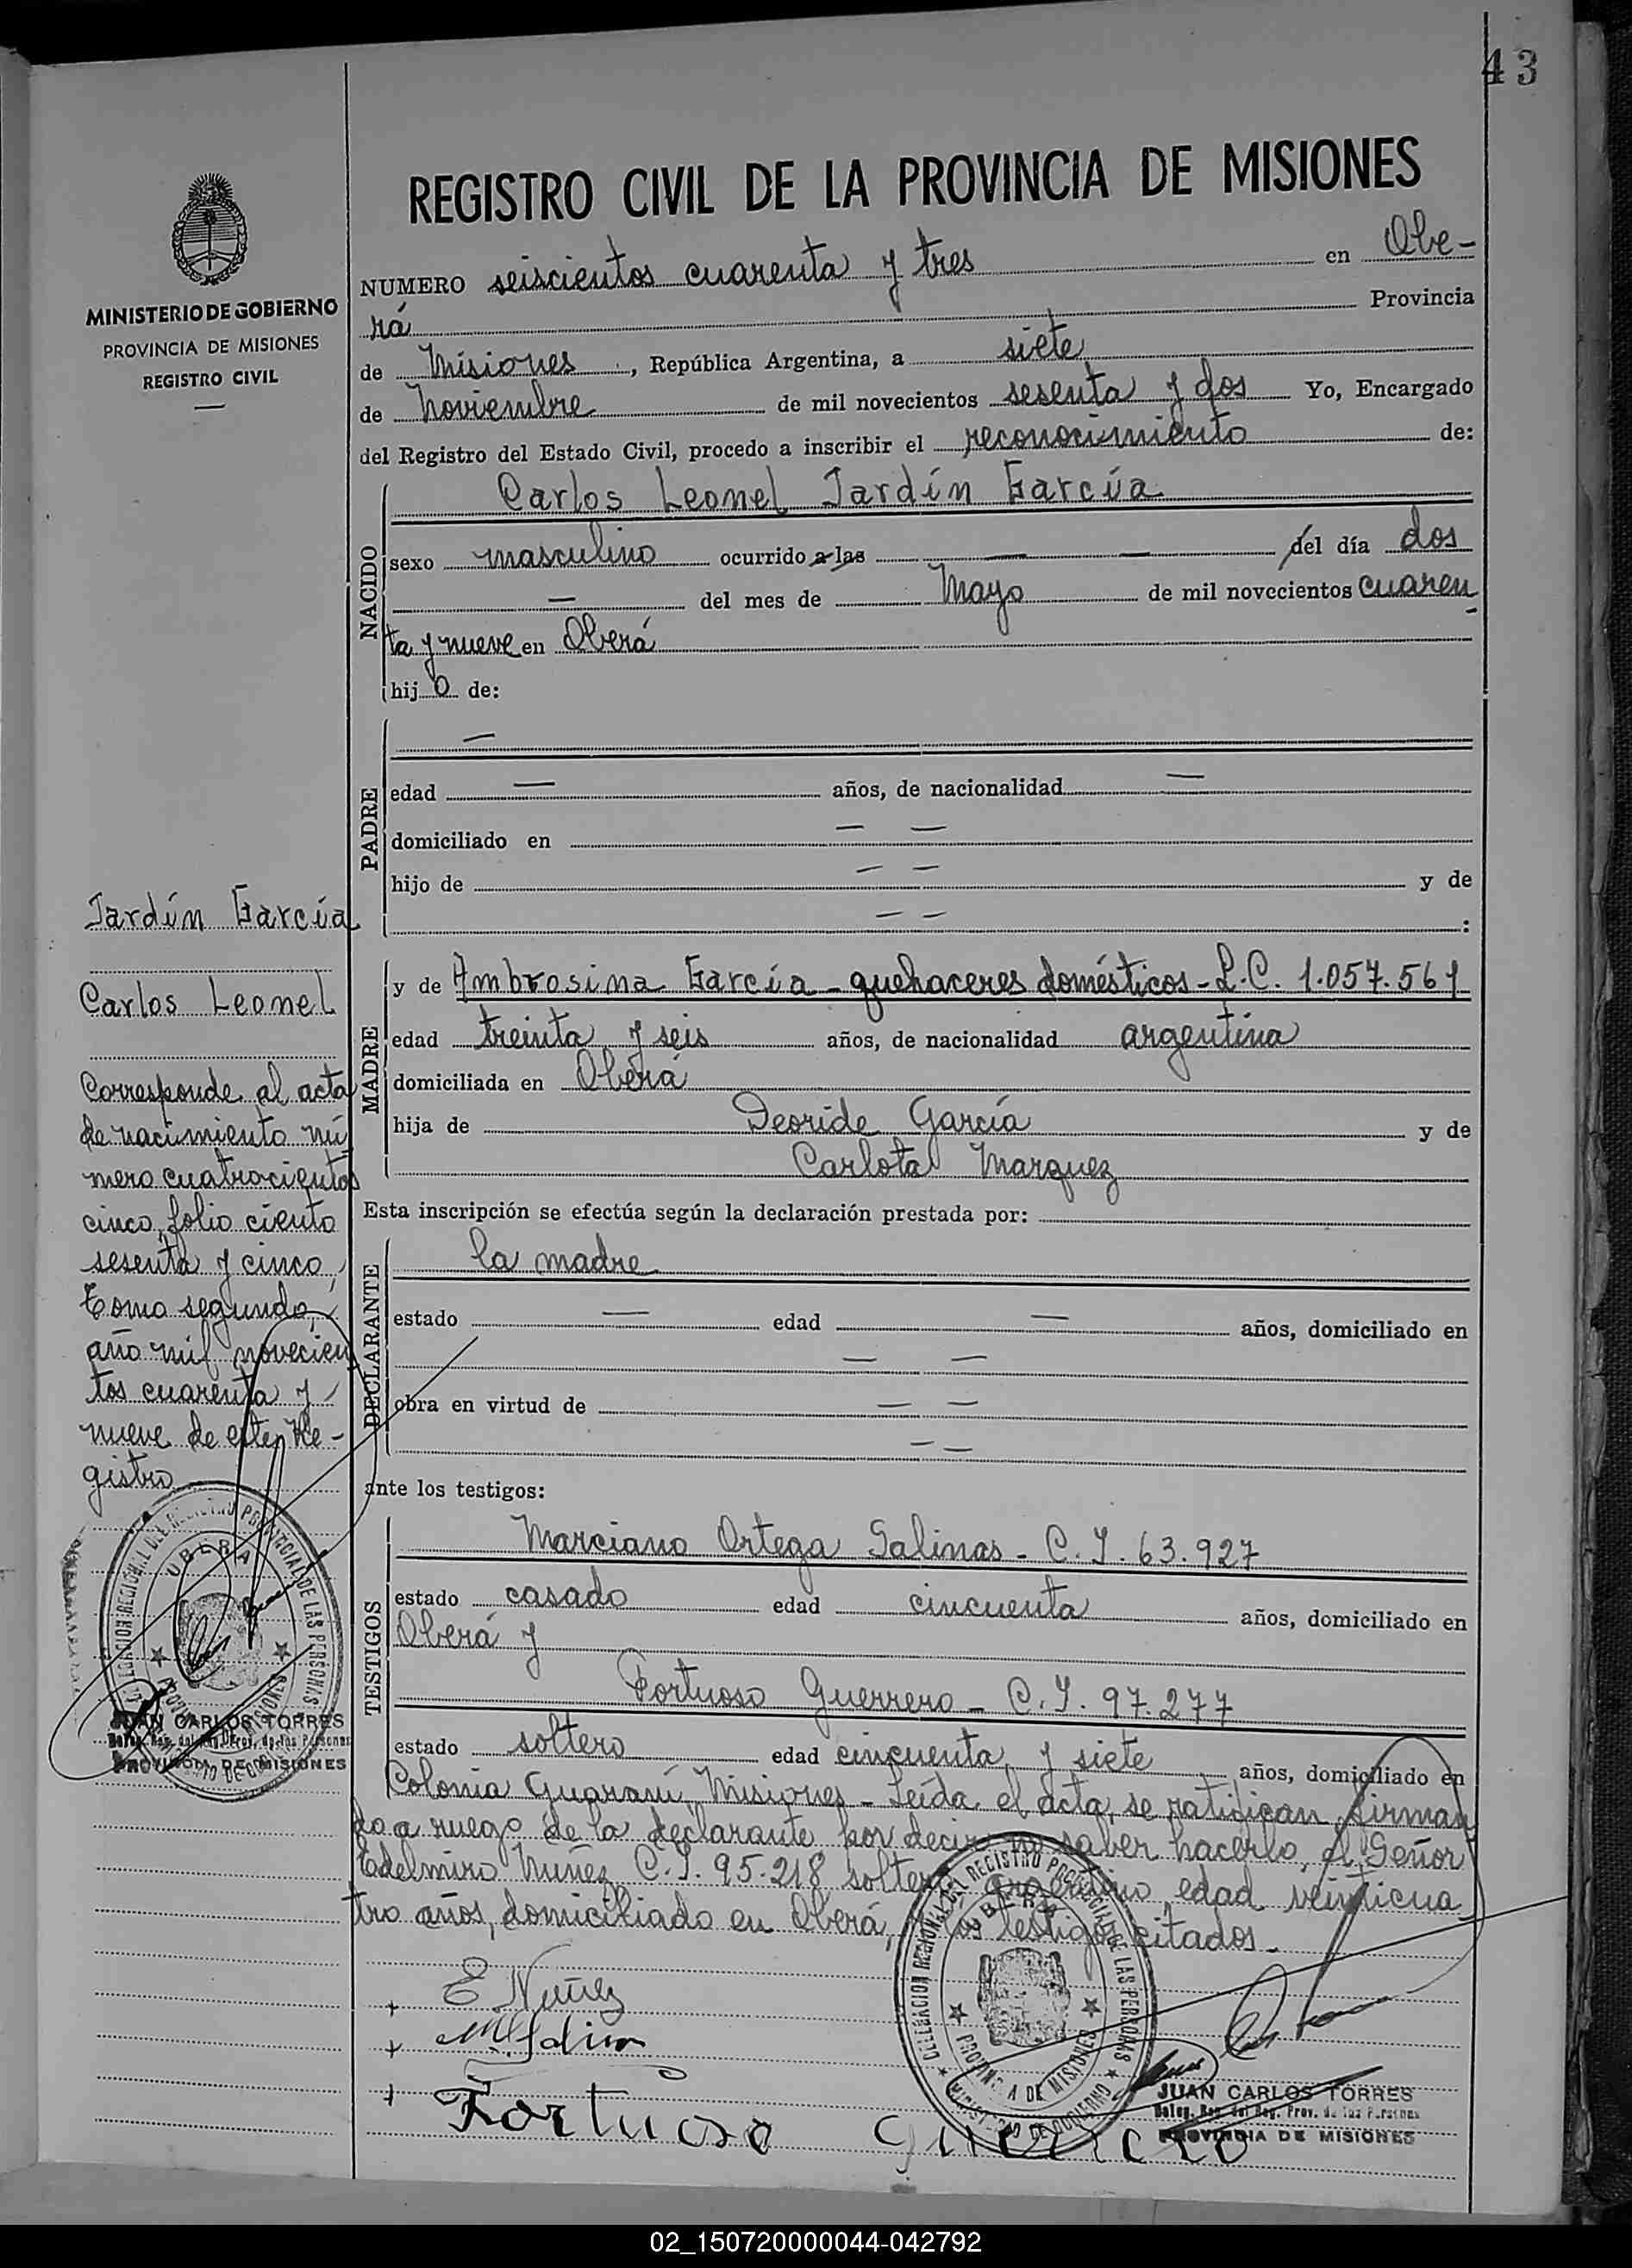 43
REGISTRO CIVIL DE LA PROVINCIA DE MISIONES
MINISTERIO DE GOBIERNO
PROVINCIA DE MISIONES
REGISTRO CIVIL
NUMERO seiscientos cuarenta y tres en Obe-
rá Provincia
de Misiones, República Argentina, a siete
de Noviembre de mil novecientos sesenta y dos Yo, Encargado
del Registro del Estado Civil, procedo a inscribir el reconocimiento de:
NACIDO
Carlos Leonel Jardín García
sexo masculino ocurrido a las — — del día dos
— del mes de Mayo de mil novecientos cuaren-
ta y nueve en Oberá
hijo de:
PADRE
—
edad — años, de nacionalidad —
domiciliado en — —
hijo de — — y de
— — :
MADRE
y de Ambrosina García - quehaceres domésticos - L.C. 1.057.561
edad treinta y seis años, de nacionalidad argentina
domiciliada en Oberá
hija de Deoride García y de
Carlota Marquez
Esta inscripción se efectúa según la declaración prestada por:
DECLARANTE
la madre
estado — edad — años, domiciliado en
— —
obra en virtud de — —
— —
ante los testigos:
TESTIGOS
Marciano Ortega Salinas - C.I. 63.927
estado casado edad cincuenta años, domiciliado en
Oberá y
Fortuoso Guerrero - C.I. 97.277
estado soltero edad cincuenta y siete años, domiciliado en
Colonia Guaraní, Misiones - Leída el acta, se ratifican, firman
do a ruego de la declarante por decir no saber hacerlo, el Señor
Edelmiro Nuñez, C.I. 95.218 soltero argentino edad veinticua
tro años, domiciliado en Oberá, y los testigos citados.
E Nuñez
Fortuoso Guerrero
DELEGACION REGIONAL DEL REGISTRO PROVINCIAL DE LAS PERSONAS
OBERA
PROVINCIA DE MISIONES
MINISTERIO DE GOBIERNO
JUAN CARLOS TORRES
Deleg. Reg. del Reg. Prov. de las Personas
PROVINCIA DE MISIONES
Jardín García
Carlos Leonel
Corresponde al acta
de nacimiento nú
mero cuatrocientos
cinco, folio ciento
sesenta y cinco,
Tomo segundo,
año mil novecien
tos cuarenta y
nueve de este Re-
gistro
DELEGACION REGIONAL DEL REGISTRO PROVINCIAL DE LAS PERSONAS
OBERA
PROVINCIA DE MISIONES
MINISTERIO DE GOBIERNO
JUAN CARLOS TORRES
Deleg. Reg. del Reg. Prov. de las Personas
PROVINCIA DE MISIONES
02_150720000044-042792